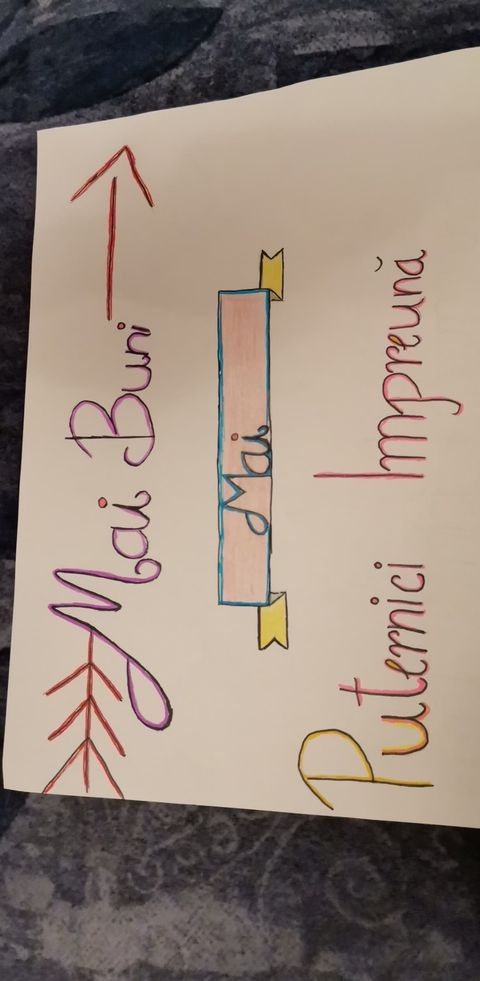 Mai Buni
Mai
Puternici Impreună